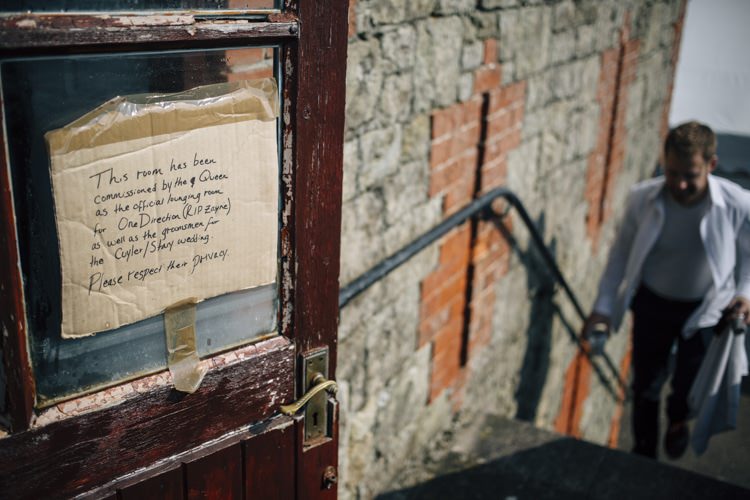 This room has been
commissioned by the Queen
as the official lounging room
for One Direction (RIP Zayne)
as well as the groomsmen for
the Cuyler/Stary wedding.
Please respect their privacy.